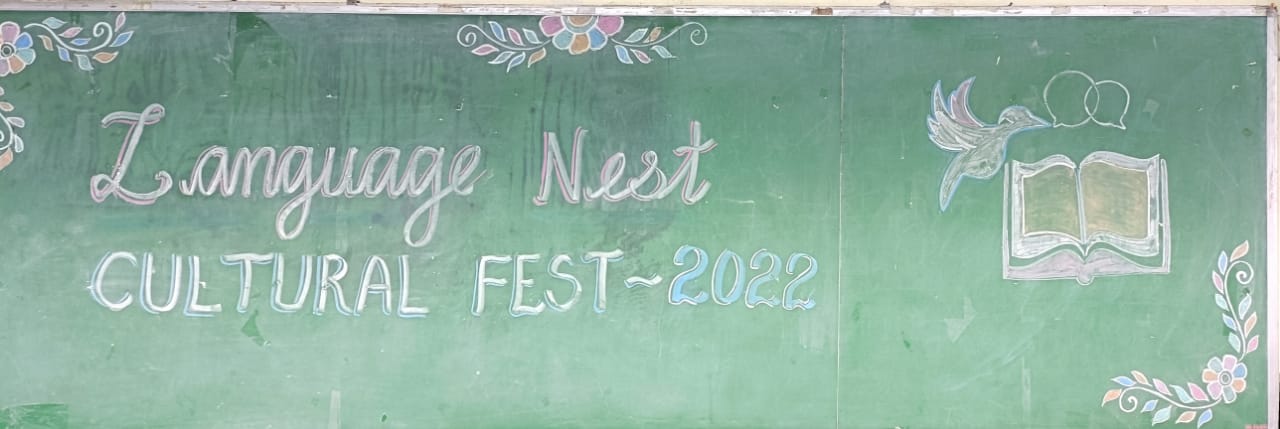 Language Nest
CULTURAL FEST~2022